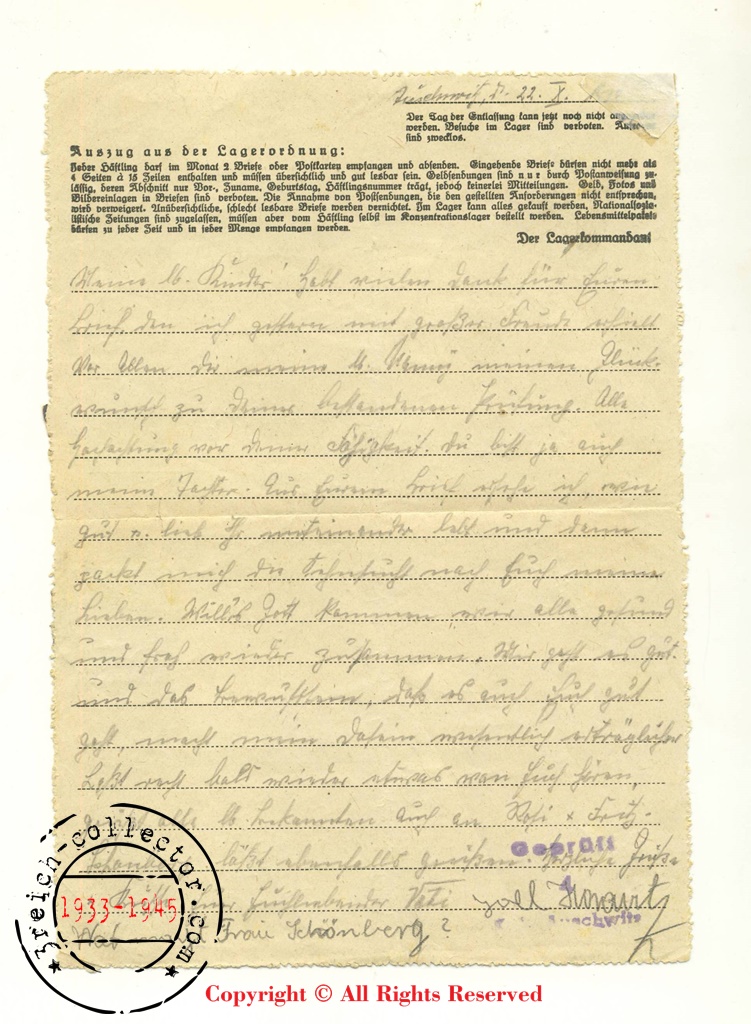 Auschwitz, d. 22. X.
Der Tag der Entlassung kann jetzt noch nicht
werden. Besuche im Lager sind verboten.
sind zwecklos.
Auszug aus der Lagerordnung:
Jeder Häftling darf im Monat 2 Briefe oder Postkarten empfangen und absenden. Eingehende Briefe dürfen nicht mehr als
4 Seiten à 15 Zeilen enthalten und müssen übersichtlich und gut lesbar sein. Geldsendungen sind nur durch Postanweisung zu-
lässig, deren Abschnitt nur Vor-, Zuname, Geburtstag, Häftlingsnummer trägt, jedoch keinerlei Mitteilungen. Geld, Fotos und
Bildereinlagen in Briefen sind verboten. Die Annahme von Postsendungen, die den gestellten Anforderungen nicht entsprechen,
wird verweigert. Unübersichtliche, schlecht lesbare Briefe werden vernichtet. Im Lager kann alles gekauft werden. Nationalsozia-
listische Zeitungen sind zugelassen, müssen aber vom Häftling selbst im Konzentrationslager bestellt werden. Lebensmittelpakete
dürfen zu jeder Zeit und in jeder Menge empfangen werden.
Der Lagerkommandant
Meine lb. Kinder! Habt vielen Dank für Euren
Brief, den ich gestern mit großer Freude erhielt
Vor Allem Dir meine lb. meinen Glück-
wunsch zu Deiner bestandenen Prüfung. Alle
Hochachtung vor Deiner Fähigkeit. Du bist ja auch
meine Tochter. Aus Eurem Brief ersehe ich, wie
gut u. lieb Ihr miteinander lebt und dann
packt mich die Sehnsucht nach Euch meine
Lieben. Will's Gott kommen wir alle gesund
und froh wieder zusammen. Mir geht es gut.
und das Bewußtsein, daß es auch Euch gut
geht, macht mein Dasein wesentlich erträglicher
Laßt recht bald wieder etwas von Euch hören,
alle lb. Bekannten auch an Rosi & Fritz.
läßt ebenfalls grüßen Herzliche Grüße
Geprüft
Euchliebender Vati
Auschwitz
Frau Schönberg?
3reich-collector.com
1933-1945
Copyright © All Rights Reserved